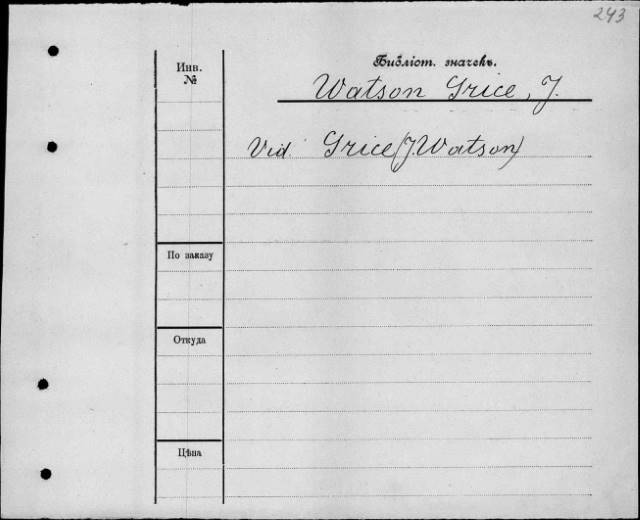 243
Библіот. значекъ.
Инв.
№
Watson Grice, J.
Vid. Grice (J. Watson)
По заказу
Откуда
Цѣна